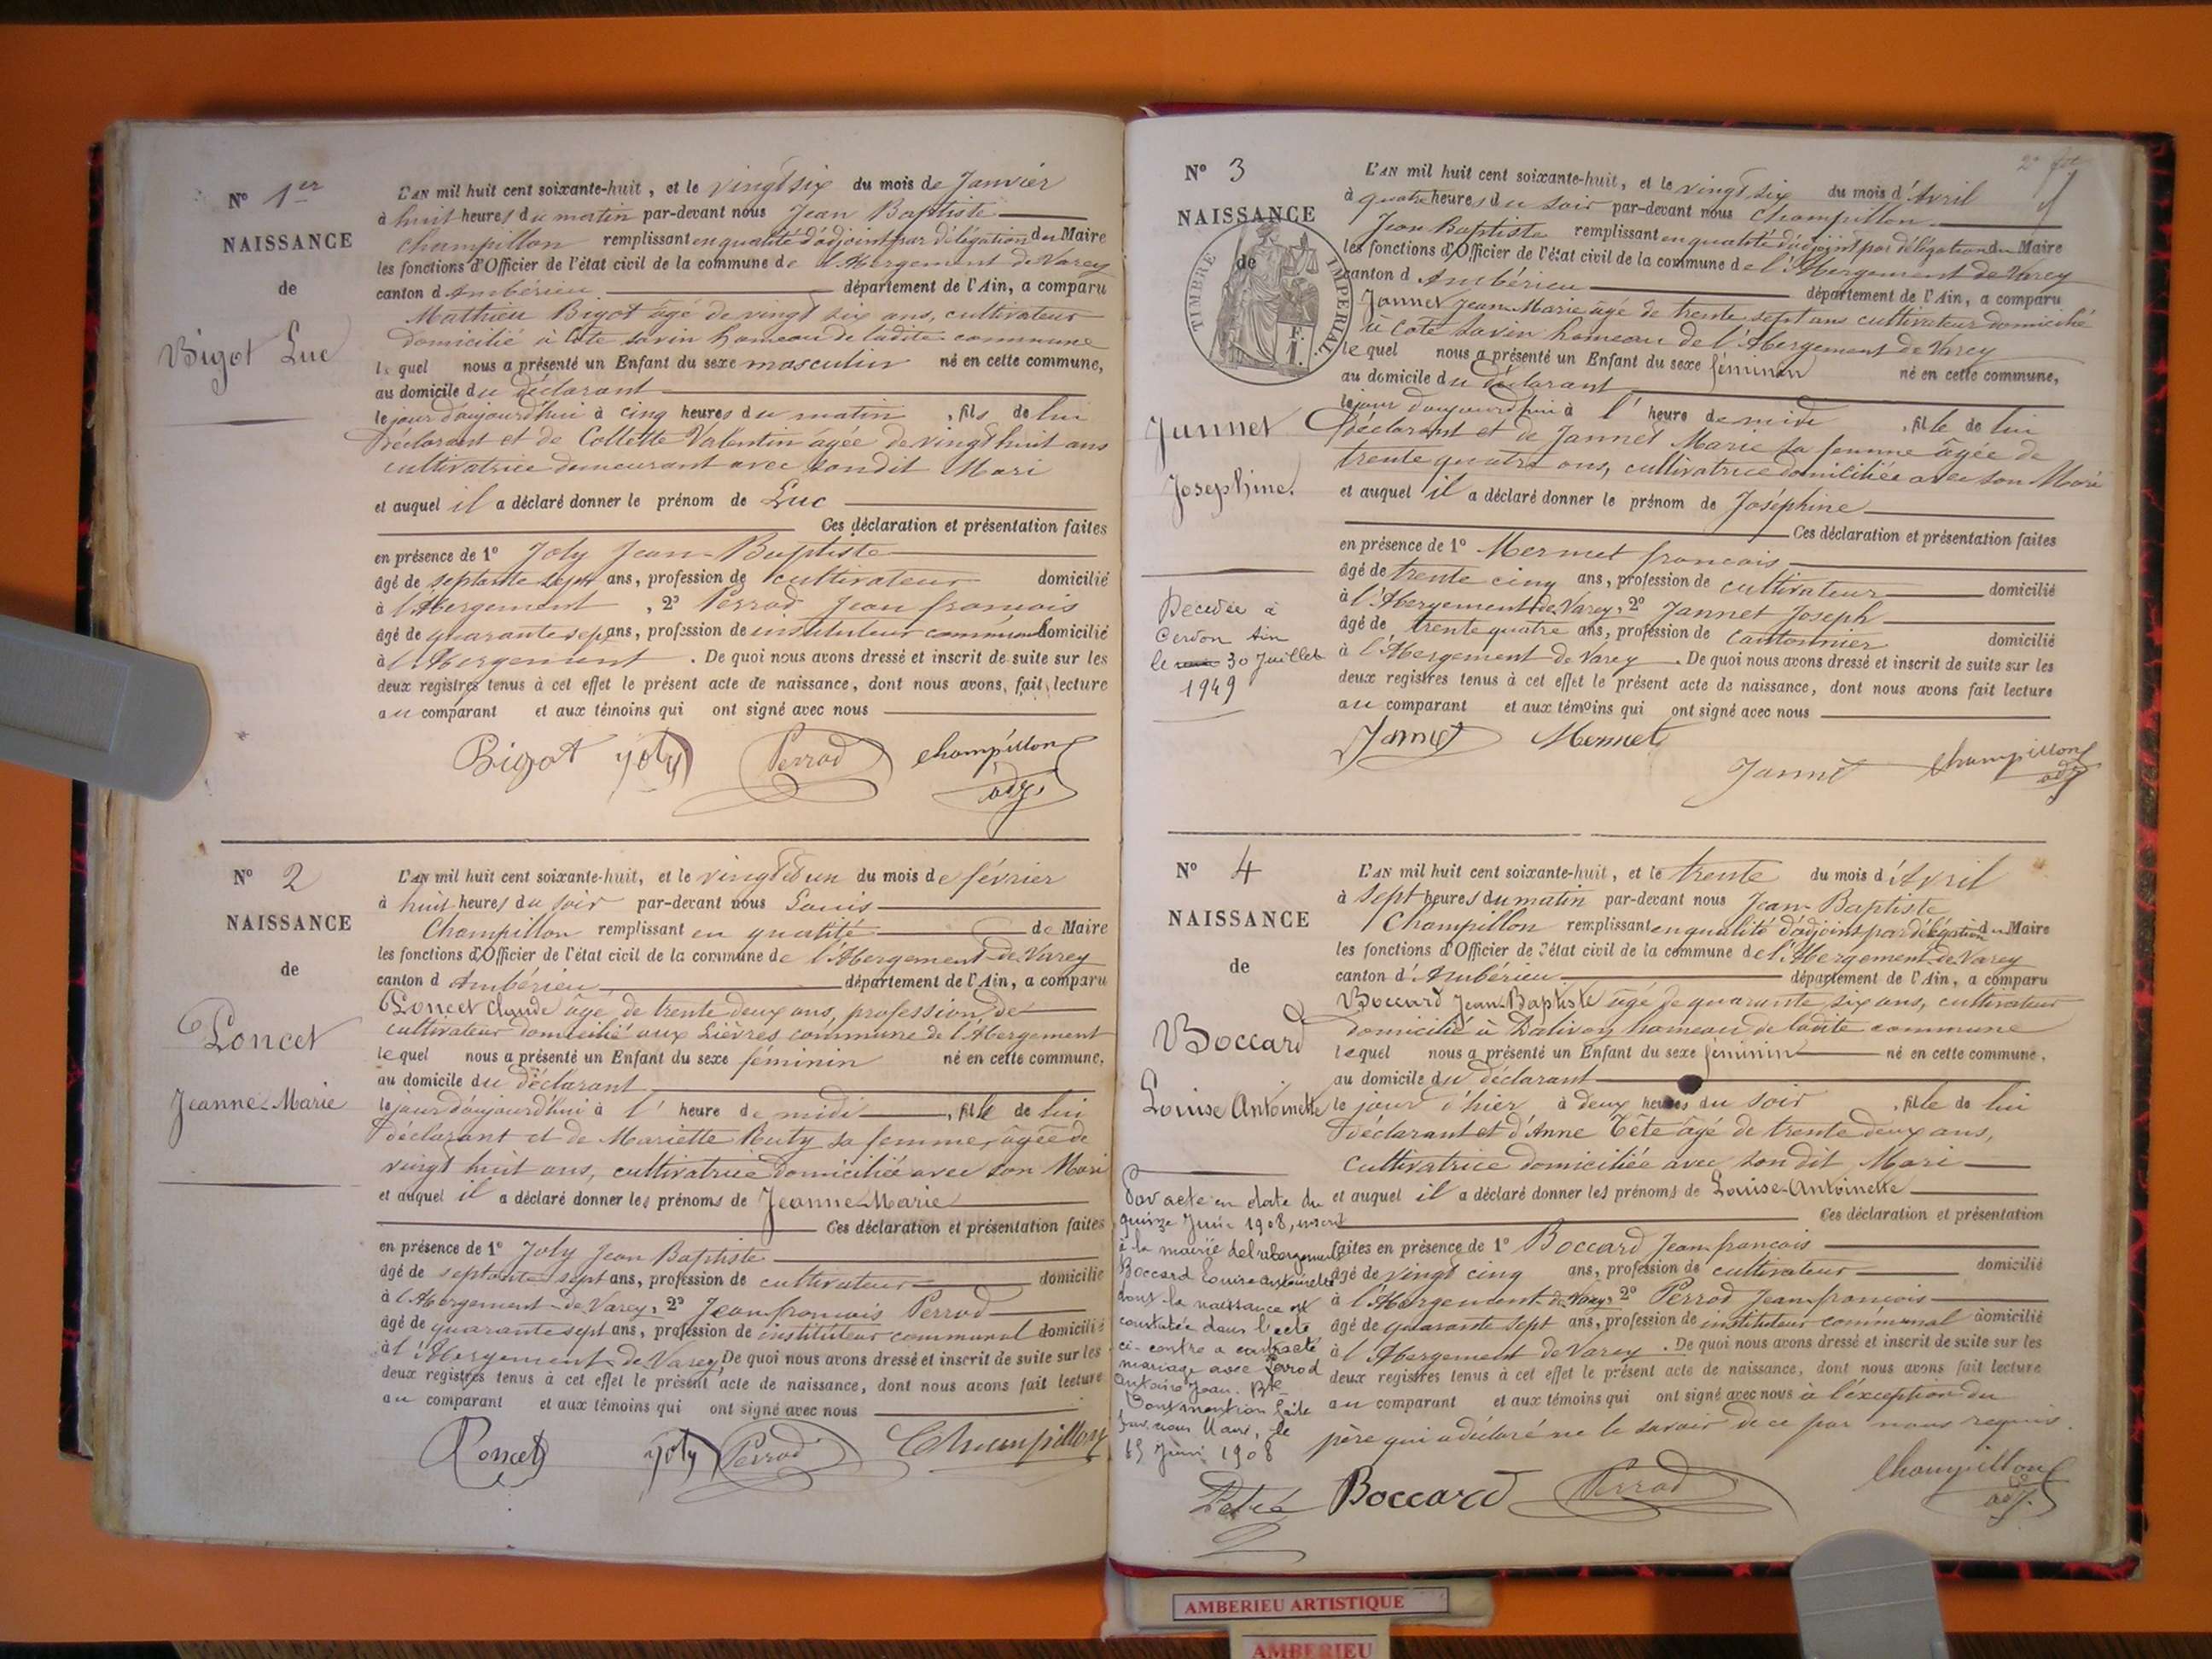 N° 1er
NAISSANCE
de
Bigot Luc
L'AN mil huit cent soixante-huit, et le vingt six du mois de Janvier
à huit heures du matin par-devant nous Jean Baptiste
Champillon remplissant en qualité d'adjoint par délégation du Maire
les fonctions d'Officier de l'état civil de la commune de l'Abergement de Varey
canton d'Ambérieu département de l'Ain, a comparu
Mathieu Bigot âgé de vingt six ans, cultivateur
domicilié à Côte savin hameau de ladite commune
lequel nous a présenté un Enfant du sexe masculin né en cette commune,
au domicile du déclarant
le jour d'aujourd'hui à cinq heures du matin, fils de lui
déclarant et de Collette Valentin âgée de vingt huit ans
cultivatrice demeurant avec son dit Mari
et auquel il a déclaré donner le prénom de Luc
Ces déclaration et présentation faites
en présence de 1° Joly Jean-Baptiste
âgé de septante sept ans, profession de cultivateur domicilié
à l'Abergement, 2° Perrod Jean françois
âgé de quarante sept ans, profession de instituteur communal domicilié
à l'Abergement. De quoi nous avons dressé et inscrit de suite sur les
deux registres tenus à cet effet le présent acte de naissance, dont nous avons fait lecture
au comparant et aux témoins qui ont signé avec nous
Bigot Joly Perrod Champillon
adj.
N° 2
NAISSANCE
de
Poncet
Jeanne-Marie
L'AN mil huit cent soixante-huit, et le vingt et un du mois de février
à huit heures du soir par-devant nous Louis
Champillon remplissant en qualité de Maire
les fonctions d'Officier de l'état civil de la commune de l'Abergement-de-Varey
canton d'Ambérieu département de l'Ain, a comparu
Poncet Claude âgé de trente deux ans, profession de
cultivateur domicilié aux Lièvres commune de l'Abergement
lequel nous a présenté un Enfant du sexe féminin né en cette commune,
au domicile du déclarant
le jour d'aujourd'hui à l' heure de midi, fille de lui
déclarant et de Mariette Buty sa femme, âgée de
vingt huit ans, cultivatrice domiciliée avec son Mari
et auquel il a déclaré donner les prénoms de Jeanne-Marie
Ces déclaration et présentation faites
en présence de 1° Joly Jean Baptiste
âgé de septante sept ans, profession de cultivateur domicilié
à l'Abergement-de-Varey, 2° Jean françois Perrod
âgé de quarante sept ans, profession de instituteur communal domicilié
à l'Abergement de Varey. De quoi nous avons dressé et inscrit de suite sur les
deux registres tenus à cet effet le présent acte de naissance, dont nous avons fait lecture
au comparant et aux témoins qui ont signé avec nous
Poncet Joly Perrod Champillon
N° 3
NAISSANCE
de
TIMBRE IMPERIAL
F. 1.
Jannet
Joséphine.
Décédée à
Cerdon Ain
le 30 Juillet
1949
L'AN mil huit cent soixante-huit, et le vingt six du mois d'Avril
à quatre heures du soir par-devant nous Champillon
Jean Baptiste remplissant en qualité d'adjoint par délégation du Maire
les fonctions d'Officier de l'état civil de la commune de l'Abergement de Varey
canton d'Ambérieu département de l'Ain, a comparu
Jannet Jean-Marie âgé de trente sept ans cultivateur domicilié
à côte savin hameau de l'Abergement de Varey
lequel nous a présenté un Enfant du sexe féminin né en cette commune,
au domicile du déclarant
le jour d'aujourd'hui à l' heure de midi, fille de lui
déclarant et de Jannet Marie sa femme âgée de
trente quatre ans, cultivatrice domiciliée avec son Mari
et auquel il a déclaré donner le prénom de Joséphine
Ces déclaration et présentation faites
en présence de 1° Mermet françois
âgé de trente cinq ans, profession de cultivateur domicilié
à l'Abergement de Varey, 2° Jannet Joseph
âgé de trente quatre ans, profession de Cantonnier domicilié
à l'Abergement de Varey. De quoi nous avons dressé et inscrit de suite sur les
deux registres tenus à cet effet le présent acte de naissance, dont nous avons fait lecture
au comparant et aux témoins qui ont signé avec nous
Jannet Mermet
Jannet Champillon
adj
N° 4
NAISSANCE
de
Boccard
Louise Antoinette
Par acte en date du
quinze Juin 1908, inscrit
à la mairie de l'abergement
Boccard Louise antoinette
dont la naissance est
constatée dans l'acte
ci-contre a contracté
mariage avec Perrod
Antoine Jean Bte
Dont mention faite
par nous Maire, le
15 Juin 1908
L'AN mil huit cent soixante-huit, et le trente du mois d'Avril
à sept heures du matin par-devant nous Jean-Baptiste
Champillon remplissant en qualité d'adjoint par délégation du Maire
les fonctions d'Officier de l'état civil de la commune de l'Abergement-de-Varey
canton d'Ambérieu département de l'Ain, a comparu
Boccard Jean-Baptiste âgé de quarante six ans, cultivateur
domicilié à Dalivoy hameau de ladite commune
lequel nous a présenté un Enfant du sexe féminin né en cette commune,
au domicile du déclarant
le jour d'hier à deux heures du soir, fille de lui
déclarant et d'Anne Tête âgé de trente deux ans,
cultivatrice domiciliée avec son dit Mari
et auquel il a déclaré donner les prénoms de Louise-Antoinette
Ces déclaration et présentation
faites en présence de 1° Boccard Jean françois
âgé de vingt cinq ans, profession de cultivateur domicilié
à l'Abergement-de-Varey, 2° Perrod Jean françois
âgé de quarante sept ans, profession de instituteur communal domicilié
à l'Abergement de Varey. De quoi nous avons dressé et inscrit de suite sur les
deux registres tenus à cet effet le présent acte de naissance, dont nous avons fait lecture
au comparant et aux témoins qui ont signé avec nous à l'exception du
père qui a déclaré ne le savoir de ce par nous requis.
Boccard Perrod Champillon
adj.
AMBERIEU ARTISTIQUE
AMBERIEU